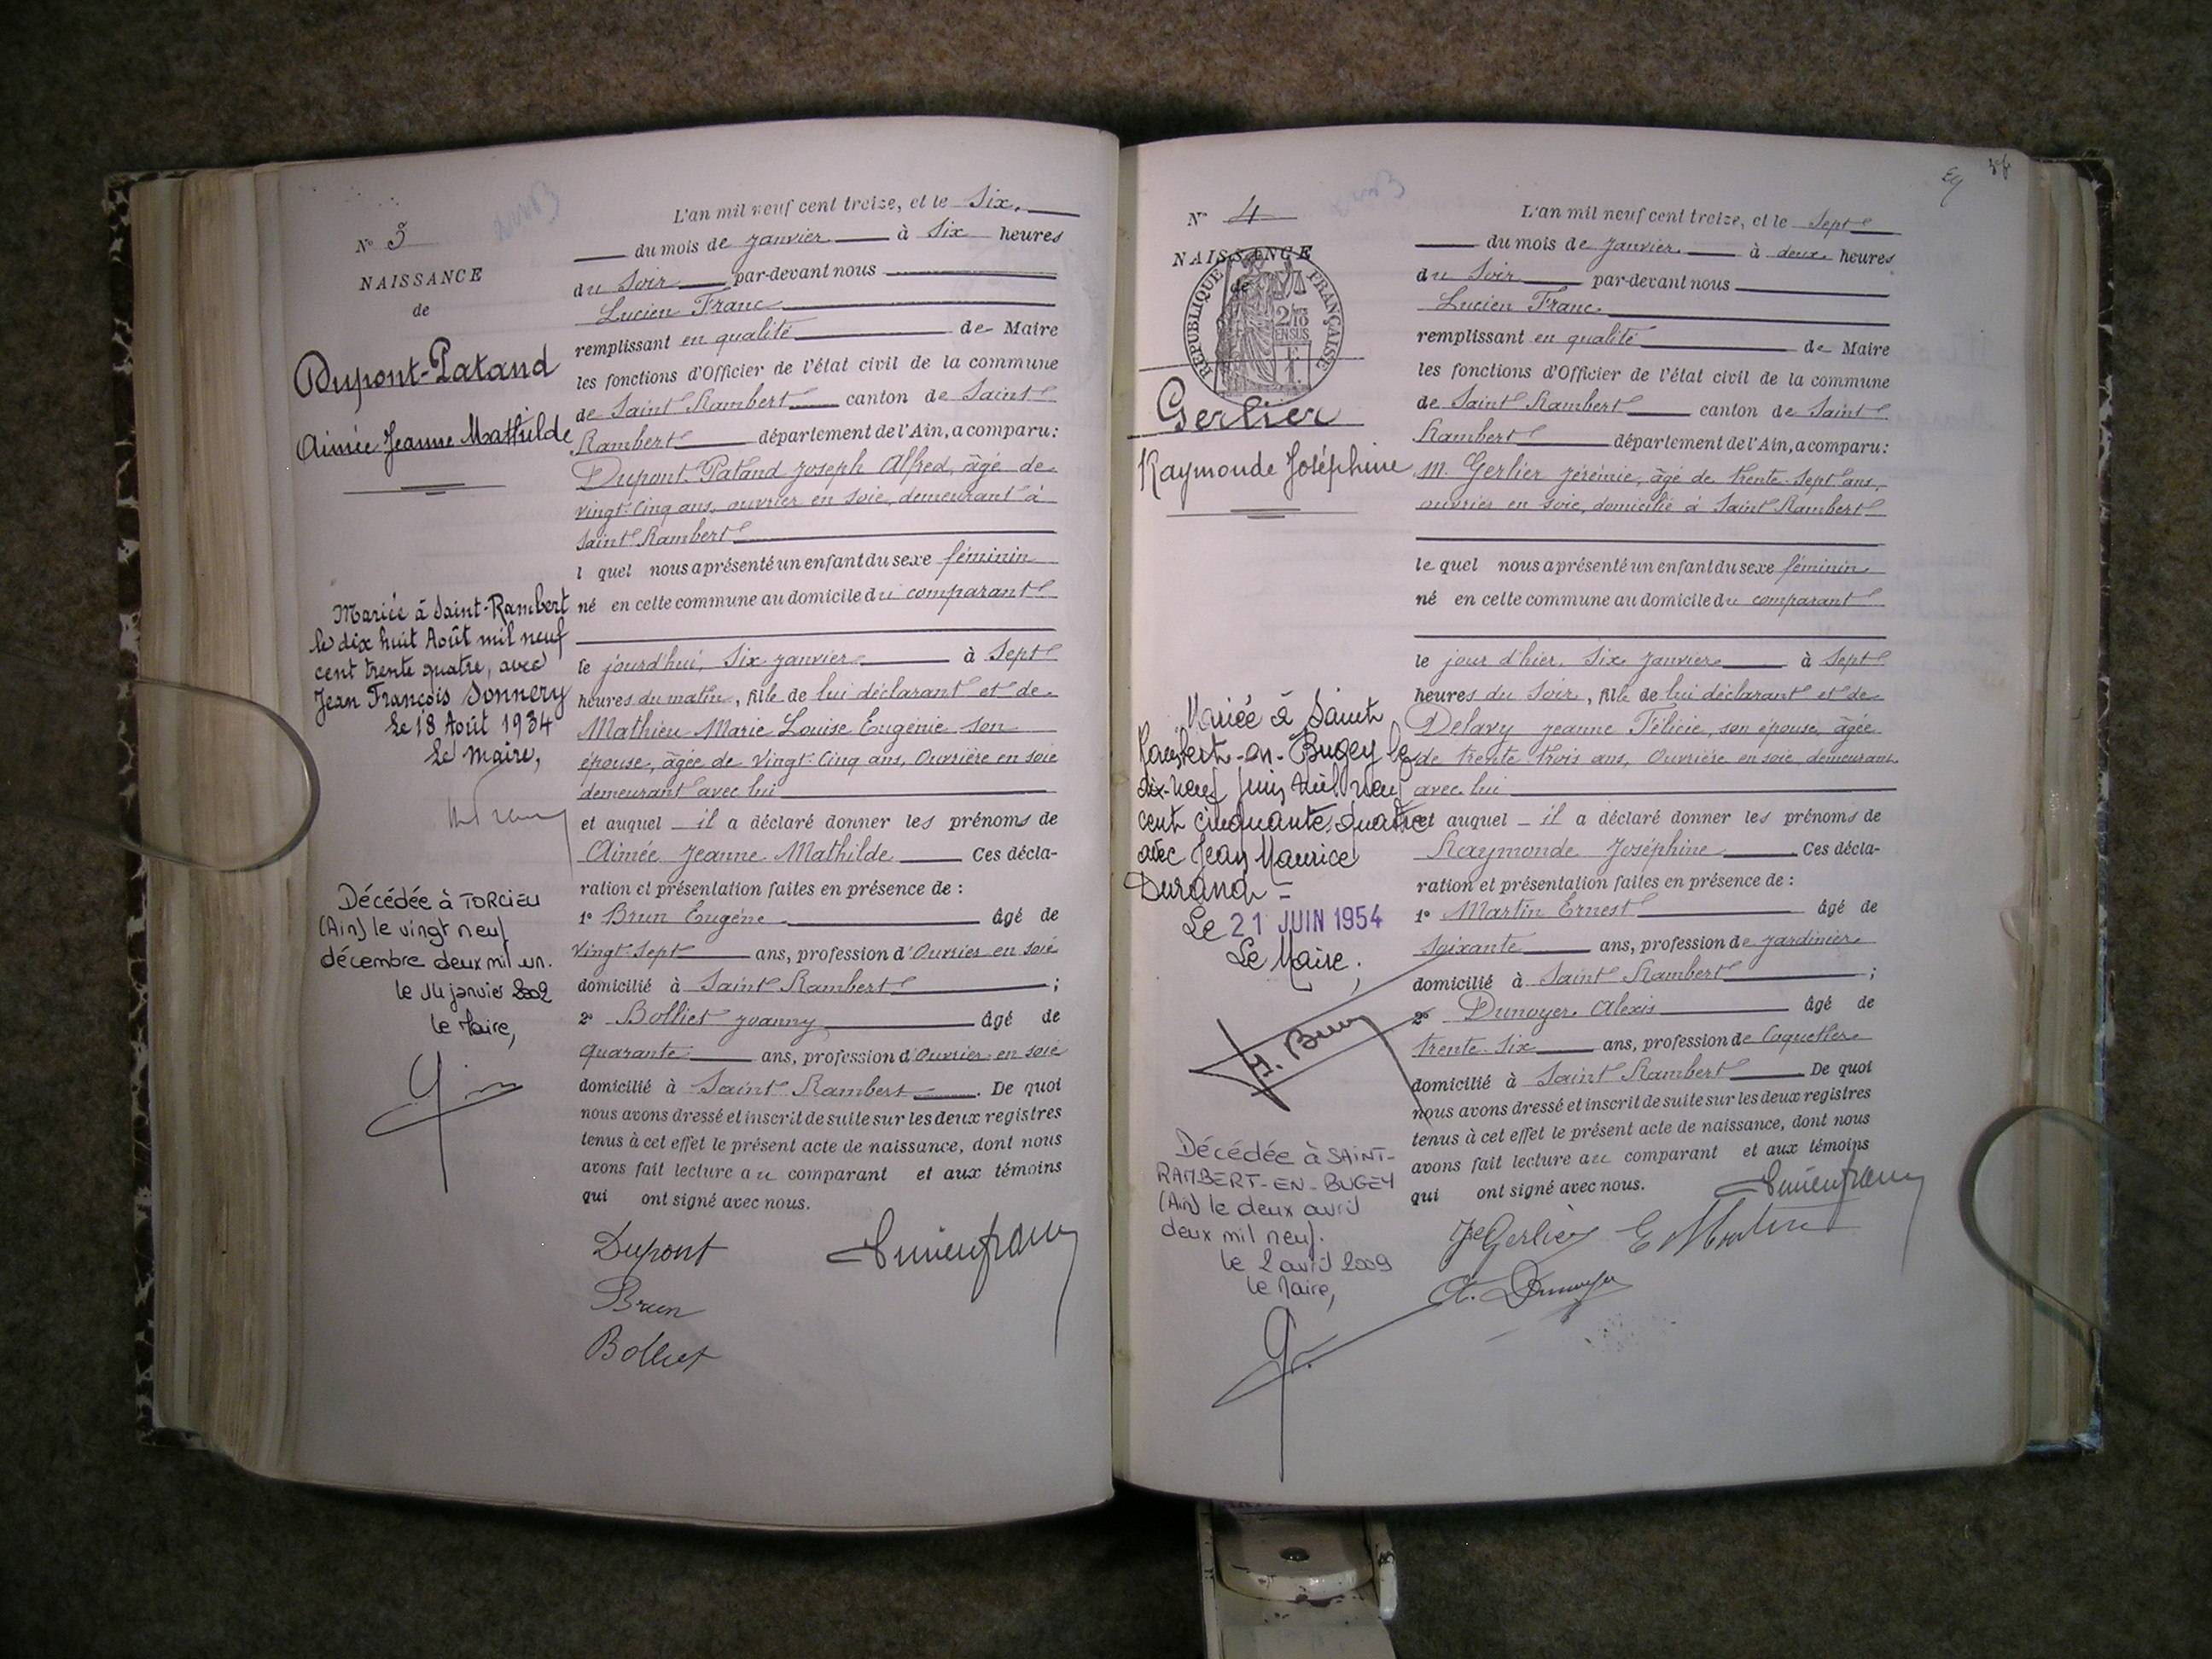 N° 3
NAISSANCE
de
Dupont-Patand
Aimée Jeanne Mathilde
Mariée à Saint-Rambert
le dix huit Août mil neuf
cent trente quatre, avec
Jean François Sonnery
Le 18 Août 1934
Le Maire,
Décédée à TORCIEU
(Ain) le vingt neuf
décembre deux mil un.
le 14 janvier 2002
le Maire,
L'an mil neuf cent treize, et le Six.
du mois de janvier à Six heures
du Soir par-devant nous
Lucien Franc
remplissant en qualité de Maire
les fonctions d'Officier de l'état civil de la commune
de Saint Rambert canton de Saint
Rambert département de l'Ain, a comparu:
Dupont-Patand Joseph Alfred, âgé de
vingt-cinq ans, ouvrier en soie, demeurant à
Saint Rambert
l quel nous a présenté un enfant du sexe féminin
né en cette commune au domicile du comparant
le jourd'hui, Six janvier à Sept
heures du matin, fille de lui déclarant et de
Mathieu Marie Louise Eugénie son
épouse, âgée de vingt-cinq ans, Ouvrière en soie
demeurant avec lui
et auquel il a déclaré donner les prénoms de
Aimée Jeanne Mathilde Ces décla-
ration et présentation faites en présence de :
1° Brun Eugène âgé de
vingt-sept ans, profession d'Ouvrier en soie
domicilié à Saint Rambert ;
2° Bolliet Joanny âgé de
quarante ans, profession d'Ouvrier en soie
domicilié à Saint Rambert . De quoi
nous avons dressé et inscrit de suite sur les deux registres
tenus à cet effet le présent acte de naissance, dont nous
avons fait lecture au comparant et aux témoins
qui ont signé avec nous.
Dupont
Lucien Franc
Brun
Bolliet
N° 4
NAISSANCE
de
RÉPUBLIQUE FRANÇAISE
2/10 EN SUS
1 F.
Gerlier
Raymonde Joséphine
Mariée à Saint
Rambert-en-Bugey le
dix-neuf juin mil neuf
cent cinquante quatre
avec Jean Maurice
Durand
Le 21 JUIN 1954
Le Maire,
Décédée à SAINT-
RAMBERT-EN-BUGEY
(Ain) le deux avril
deux mil neuf.
le 2 avril 2009
le Maire,
L'an mil neuf cent treize, et le Sept
du mois de janvier à deux heures
du Soir par-devant nous
Lucien Franc
remplissant en qualité de Maire
les fonctions d'Officier de l'état civil de la commune
de Saint Rambert canton de Saint
Rambert département de l'Ain, a comparu:
M. Gerlier Jérémie, âgé de trente-sept ans,
ouvrier en soie, domicilié à Saint Rambert
le quel nous a présenté un enfant du sexe féminin
né en cette commune au domicile du comparant
le jour d'hier, Six janvier à Sept
heures du Soir, fille de lui déclarant et de
Delavy Jeanne Félicie, son épouse, âgée
de trente trois ans, Ouvrière en soie, demeurant
avec lui
et auquel il a déclaré donner les prénoms de
Raymonde Joséphine Ces décla-
ration et présentation faites en présence de :
1° Martin Ernest âgé de
soixante ans, profession de jardinier
domicilié à Saint Rambert ;
2° Dunoyer Alexis âgé de
trente-six ans, profession de Coquetier
domicilié à Saint Rambert De quoi
nous avons dressé et inscrit de suite sur les deux registres
tenus à cet effet le présent acte de naissance, dont nous
avons fait lecture au comparant et aux témoins
qui ont signé avec nous.
Lucien Franc
Je Gerlier E Martin
A. Dunoyer